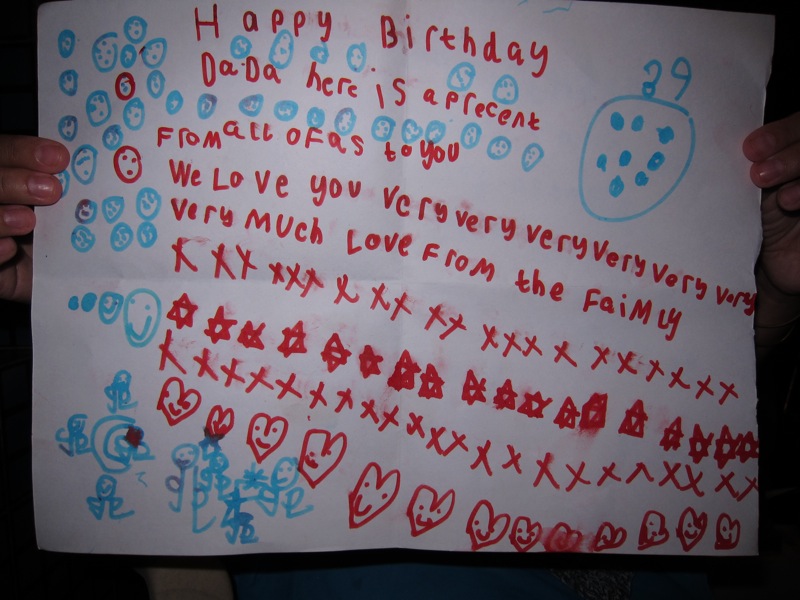 Happy Birthday
29
DaDa here is a precent
From all of as to you
We Love you very very very very very very
very Much Love From the FaiMLy
x xx xxx x xx xx xxx x xx x x x x
x x x x x x x x x x x x x x x x x x x xx x x